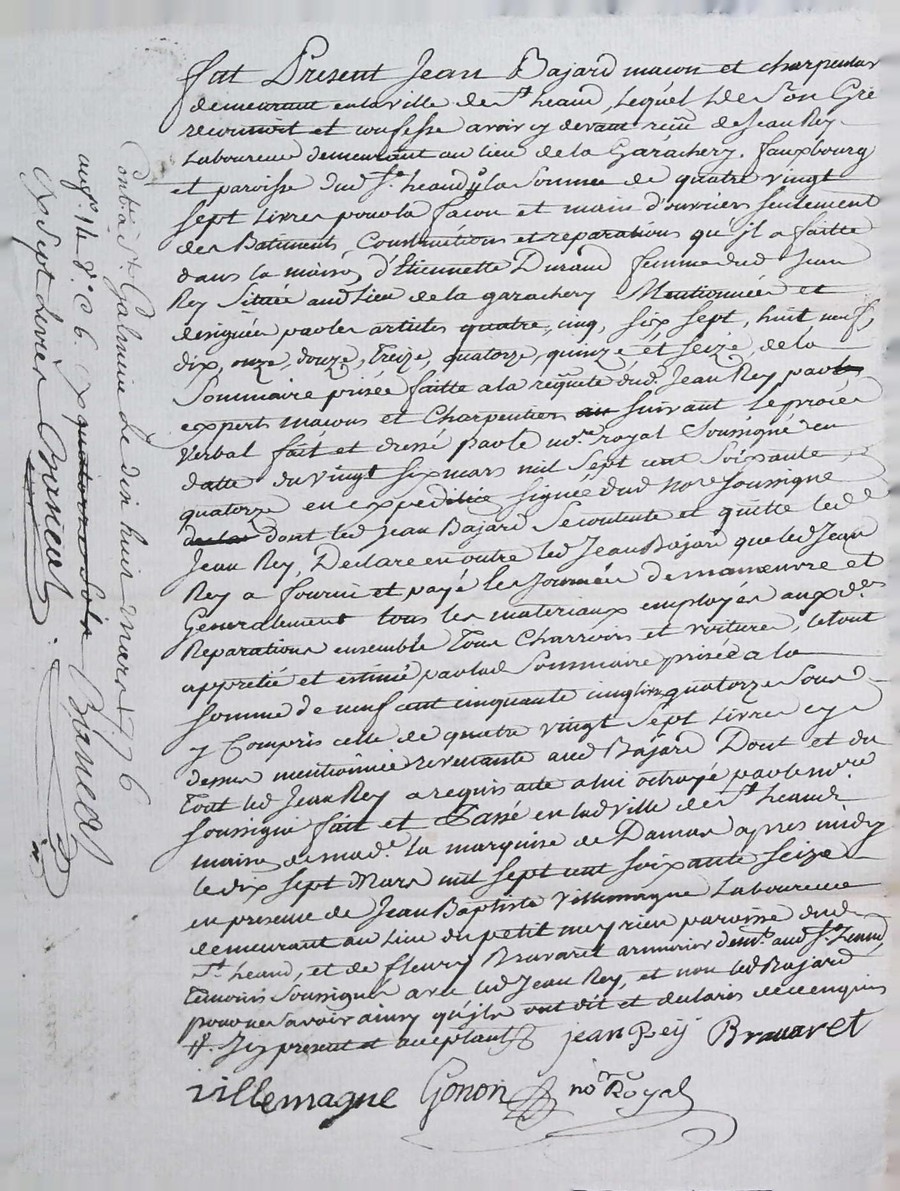 fut Present Jean Bajard macon et charpentier
demeurant en la ville de St heand, Lequel de Son Gré
reconnoit et confesse avoir cy devant reçu de Jean Rey
Laboureur demeurant au lieu de la Garachery, fauxbourg
et paroisse dud St heand la Somme de quatre vingt
sept Livres pour la façon et main d'ouvriers seulement
des Batiments Constructions et reparations qu'il a faitte
dans la maison d'Etiennette Durand femme dud Jean
Rey Située aud Lieu de la garachery Mentionnée et
designée par les articles quatre, cinq, six, sept, huit neuf,
dix, onze, douze, treize, quatorze, quinze et seize, de la
Sommaire prisée faitte a la requete dud. Jean Rey par les
experts macons et Charpentiers au suivant le procès
verbal fait et dressé par le nore. royal Soussigné en
datte du vingt six mars mil sept cent soixante
quatorze en expedition signée dud nore soussigné
dont led Jean Bajard se contente et quitte led
Jean Rey, Declare en outre led Jean Bajard que led Jean
Rey a fourni et payé les Journées de manoeuvre et
Generalement tous les materiaux employés aux d.es
Reparations ensemble Tous Charrois et voitures, le tout
appretié et estimé par lad Sommaire prisée a la
somme de neuf cent cinquante cinq livres quatorze Sous
y Compris celle de quatre vingt sept Livres cy
dessus mentionnée revenante aud Bajard Dont et du
tout led Jean Rey a requis acte a lui octroyé par le nore
soussigné fait et Passé en lad ville de St heand
maison de mad.e la marquise de Damas apres midy
le dix sept Mars mil sept cent soixante seize
en presence de Jean Baptiste Villemagne Laboureur
demeurant au Lieu du petit meyrieu paroisse dud
St heand, et de fleury Bravaret armurier demt. aud St heand
temoins soussignés avec led Jean Rey, et non led Bajard
pour ne savoir ainsy qu'ils ont dit et declarés de ce enquis
present et acceptant jean Reÿ Bravaret
villemagne Gonon nore Royal
Con.lé à St Galmier le dix huit mars 1776